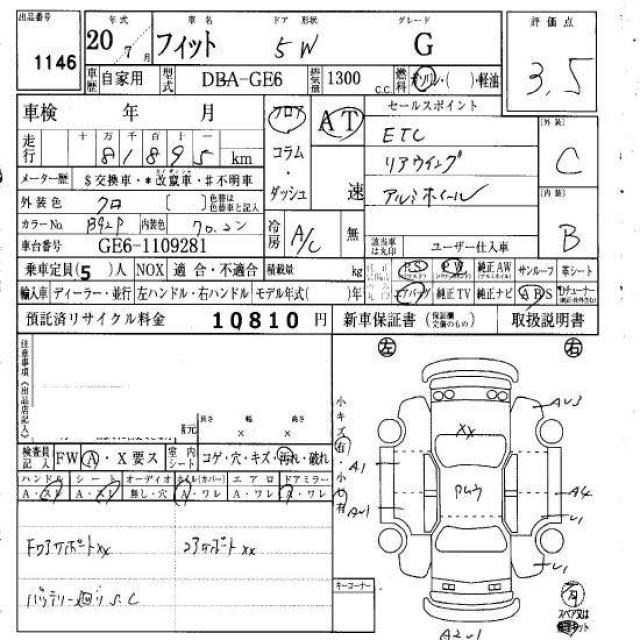 出品番号 1146
年式 20年 7月
車名 フィット
ドア 形状 5W
グレード G
評価点 3.5
車歴 自家用 型式 DBA-GE6 排気量 1300 c.c. 燃料 ガソリン・( )・軽油
車検 年 月
フロア・コラム・ダッシュ
AT 速
セールスポイント
ETC
リアウイング
アルミホイール
外装 C
内装 B
走行 十 万 千 百 十 一
81895 km
メーター歴 $交換車・*改竄車・#不明車
外装色 クロ [ ] 色替は色替車と記入
カラーNo. B92P 内装色
車台番号 GE6-1109281
冷房 A/C 無
該当車は丸印 ユーザー仕入車
乗車定員(5)人 NOX 適合・不適合 積載量 kg
PS PW 純正AW サンルーフ 革シート
輸入車 ディーラー・並行 左ハンドル・右ハンドル モデル年式( )年
エアバッグ 純正TV 純正ナビ ABS
預託済リサイクル料金 10810 円
新車保証書 (保証欄交換のもの) 取扱説明書
注意事項《出品店記入》
左 右
長さ 幅 高さ
× ×
検査員記入 FW A・X要ス 室内シート コゲ・穴・キズ・汚れ・破れ
ハンドル シート オーディオ ホイル(カバー) エアロ ドアミラー
A・スレ A・スレ 無し・穴 A・ワレ A・ワレ A・ワレ
小キズ有・小ヒ有
AU3
XX
A1
A4
AU1
U1
U1
A2U1
FロアサポートXX コアサポートXX
バッテリー廻りS.C
キーコーナー
有
スペア又は